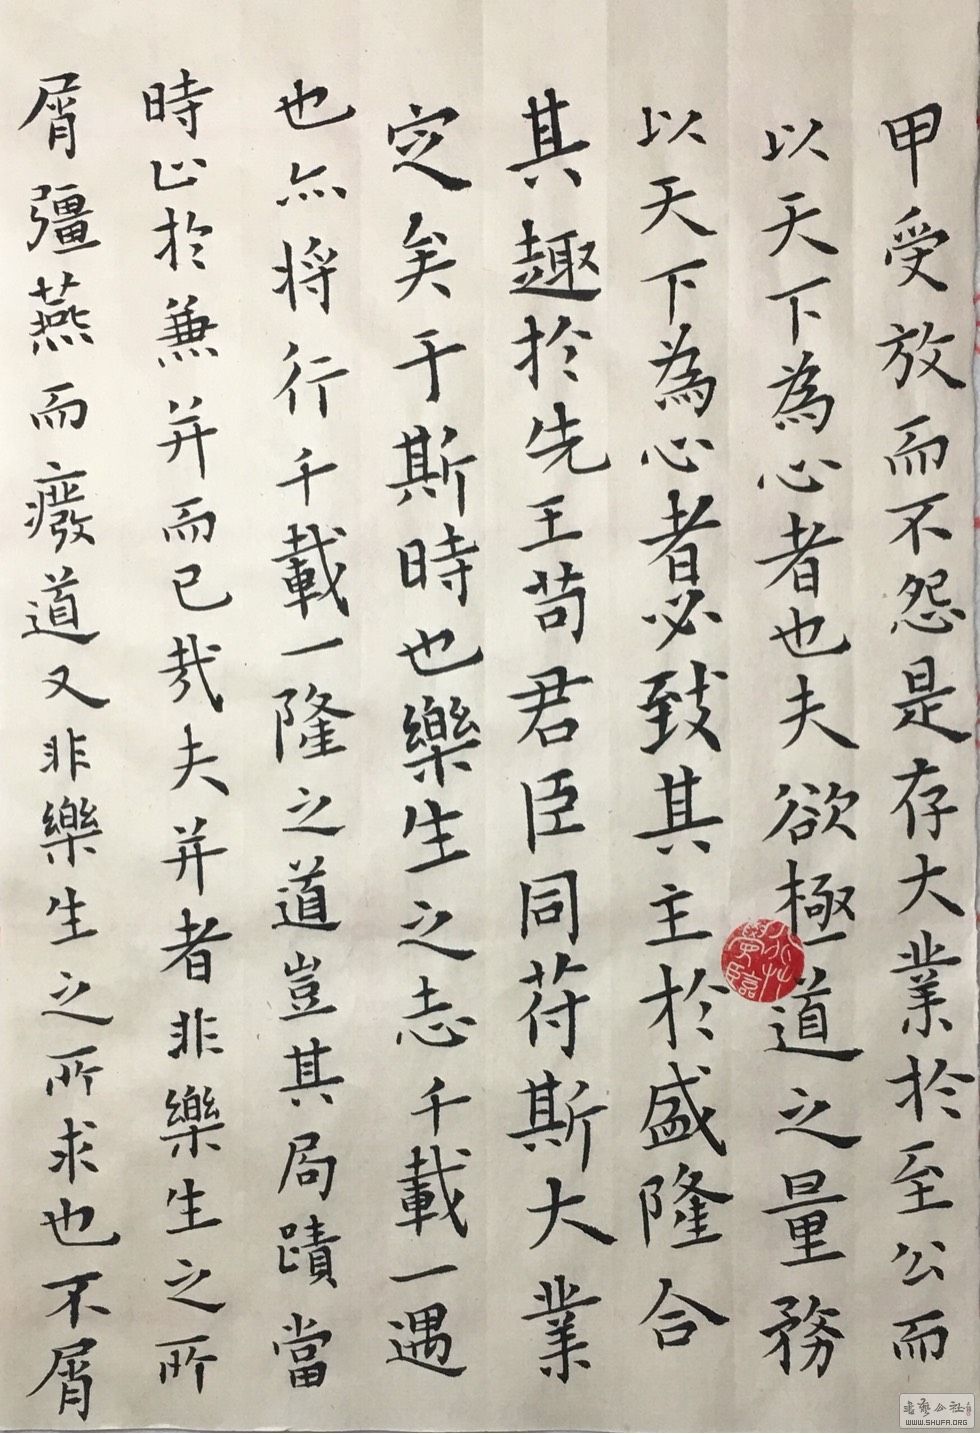 甲受放而不怨是存大業於至公而
以天下為心者也夫欲極道之量務
以天下為心者必致其主於盛隆合
其趣於先王苟君臣同苻斯大業
定矣于斯時也樂生之志千載一遇
也亦將行千載一隆之道豈其局蹟當
時止於兼并而已哉夫并者非樂生之所
屑彊燕而癈道又非樂生之所求也不屑
WWW.SHUFA.ORG